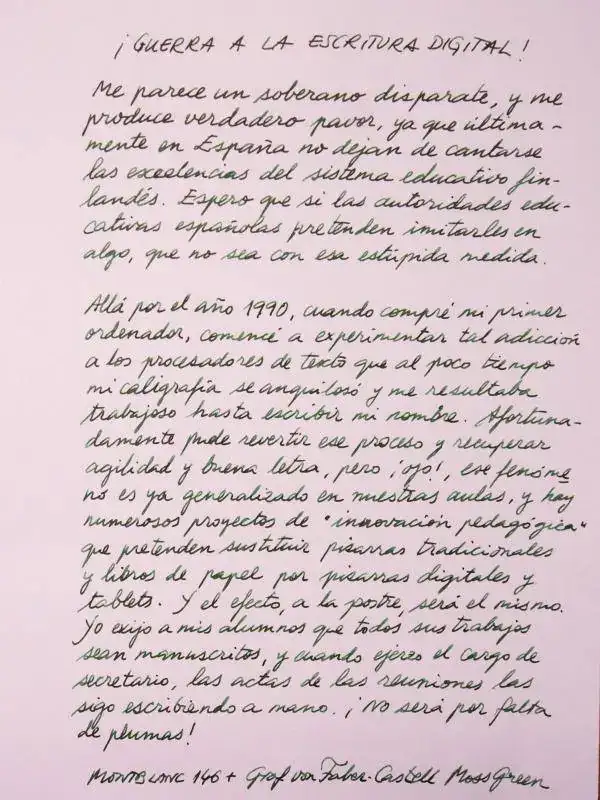 ¡GUERRA A LA ESCRITURA DIGITAL!
Me parece un soberano disparate, y me
produce verdadero pavor, ya que última-
mente en España no dejan de cantarse
las excelencias del sistema educativo fin-
landés. Espero que si las autoridades edu-
cativas españolas pretenden imitarles en
algo, que no sea con esa estúpida medida.
Allá por el año 1990, cuando compré mi primer
ordenador, comencé a experimentar tal adicción
a los procesadores de texto que al poco tiempo
mi caligrafía se anquilosó y me resultaba
trabajoso hasta escribir mi nombre. Afortuna-
damente pude revertir ese proceso y recuperar
agilidad y buena letra, pero ¡ojo!, ese fenóme
no es ya generalizado en nuestras aulas, y hay
numerosos proyectos de "innovación pedagógica"
que pretenden sustituir pizarras tradicionales
y libros de papel por pizarras digitales y
tablets. Y el efecto, a la postre, será el mismo.
Yo exijo a mis alumnos que todos sus trabajos
sean manuscritos, y cuando ejerzo el cargo de
secretario, las actas de las reuniones las
sigo escribiendo a mano. ¡No será por falta
de plumas!
MONTBLANC 146 + Graf von Faber-Castell Moss Green